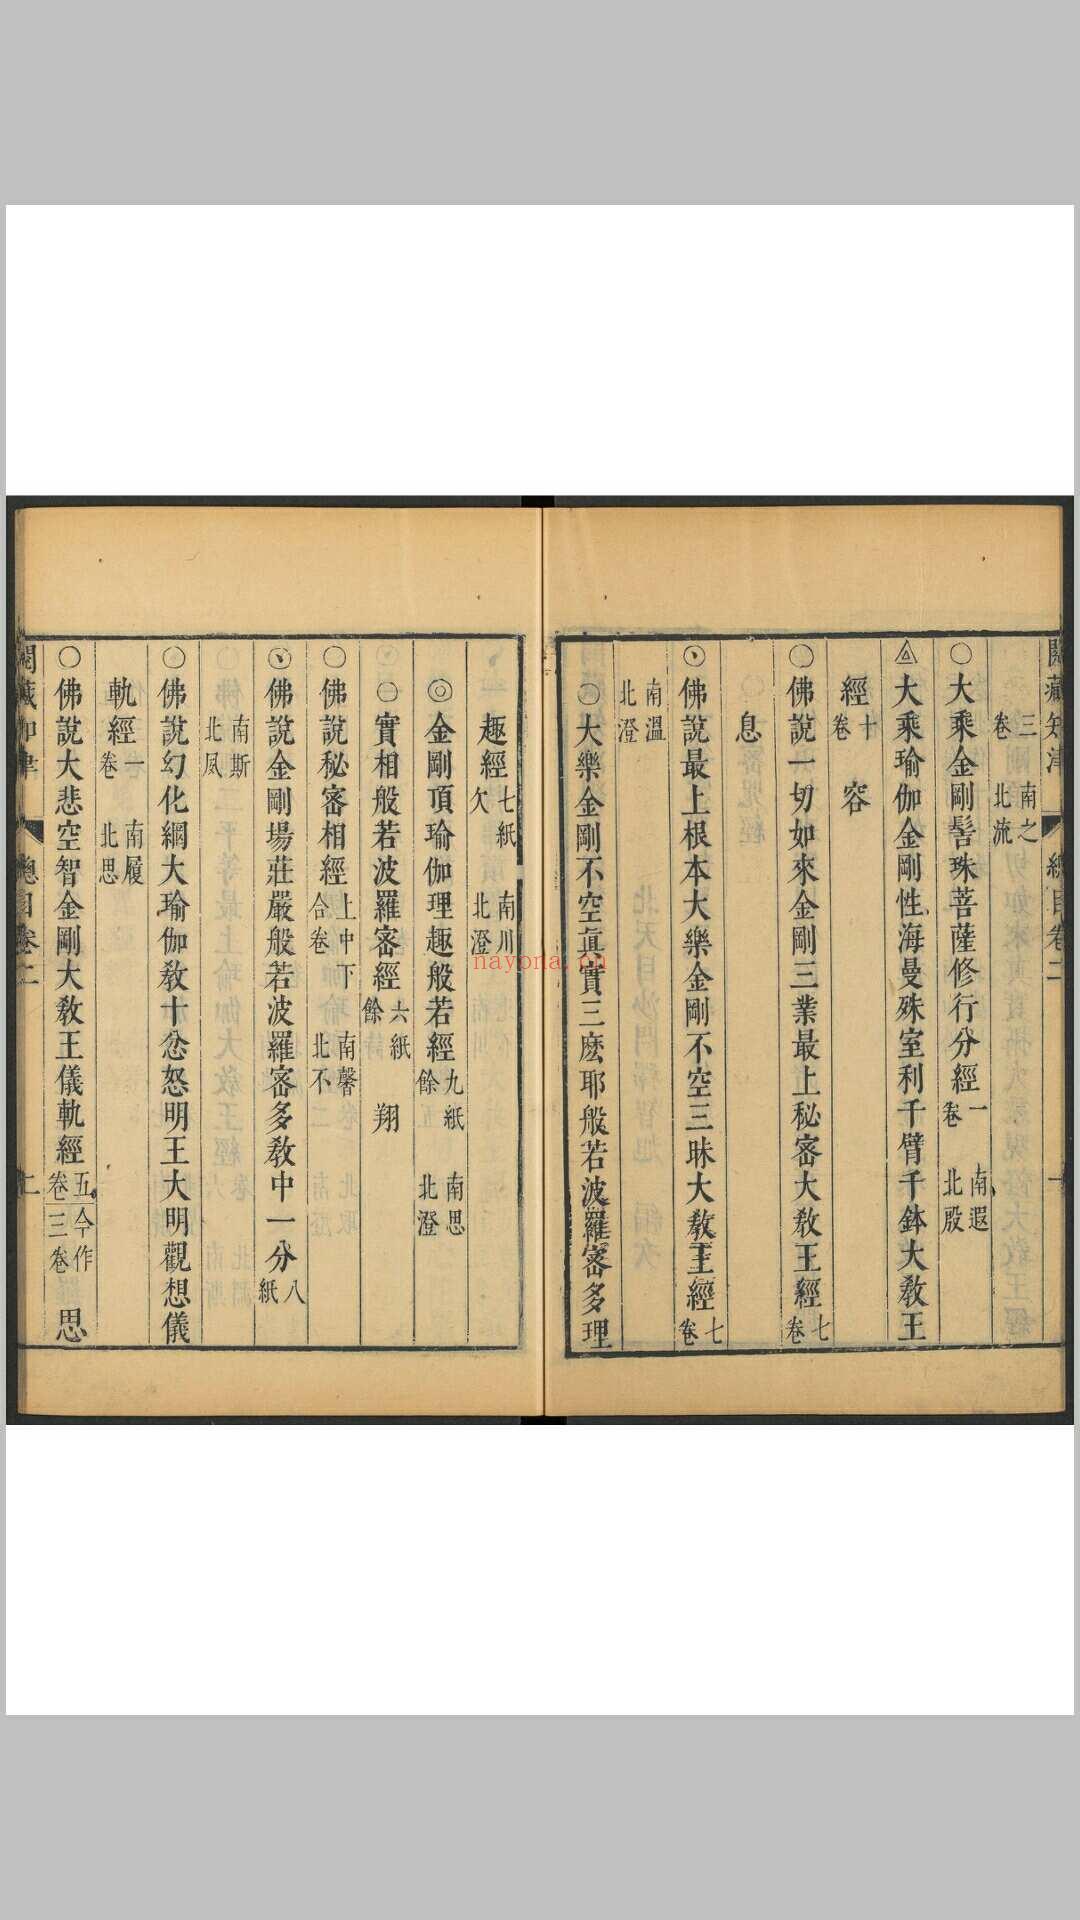 閱藏知津 總目卷二
三卷 南之 北流
〇大乘金剛髻珠菩薩修行分經一卷 南遐 北殷
大乘瑜伽金剛性海曼殊室利千臂千鉢大敎王
經十卷 容
〇佛說一切如來金剛三業最上秘密大敎王經七卷
息
佛說最上根本大樂金剛不空三昧大敎王經七卷
南溫 北澄
大樂金剛不空眞實三麽耶般若波羅密多理
趣經七紙欠 南川 北澄
◎金剛頂瑜伽理趣般若經九紙餘 南思 北澄
實相般若波羅密經六紙餘 翔
〇佛說秘密相經上中下合卷 南馨 北不
佛說金剛場莊嚴般若波羅密多敎中一分八紙
南斯 北夙
〇佛說幻化網大瑜伽敎十忿怒明王大明觀想儀
軌經一卷 南履 北思
〇佛說大悲空智金剛大敎王儀軌經五卷今作三卷 思
閱藏知津 總目卷二
nayona.cn